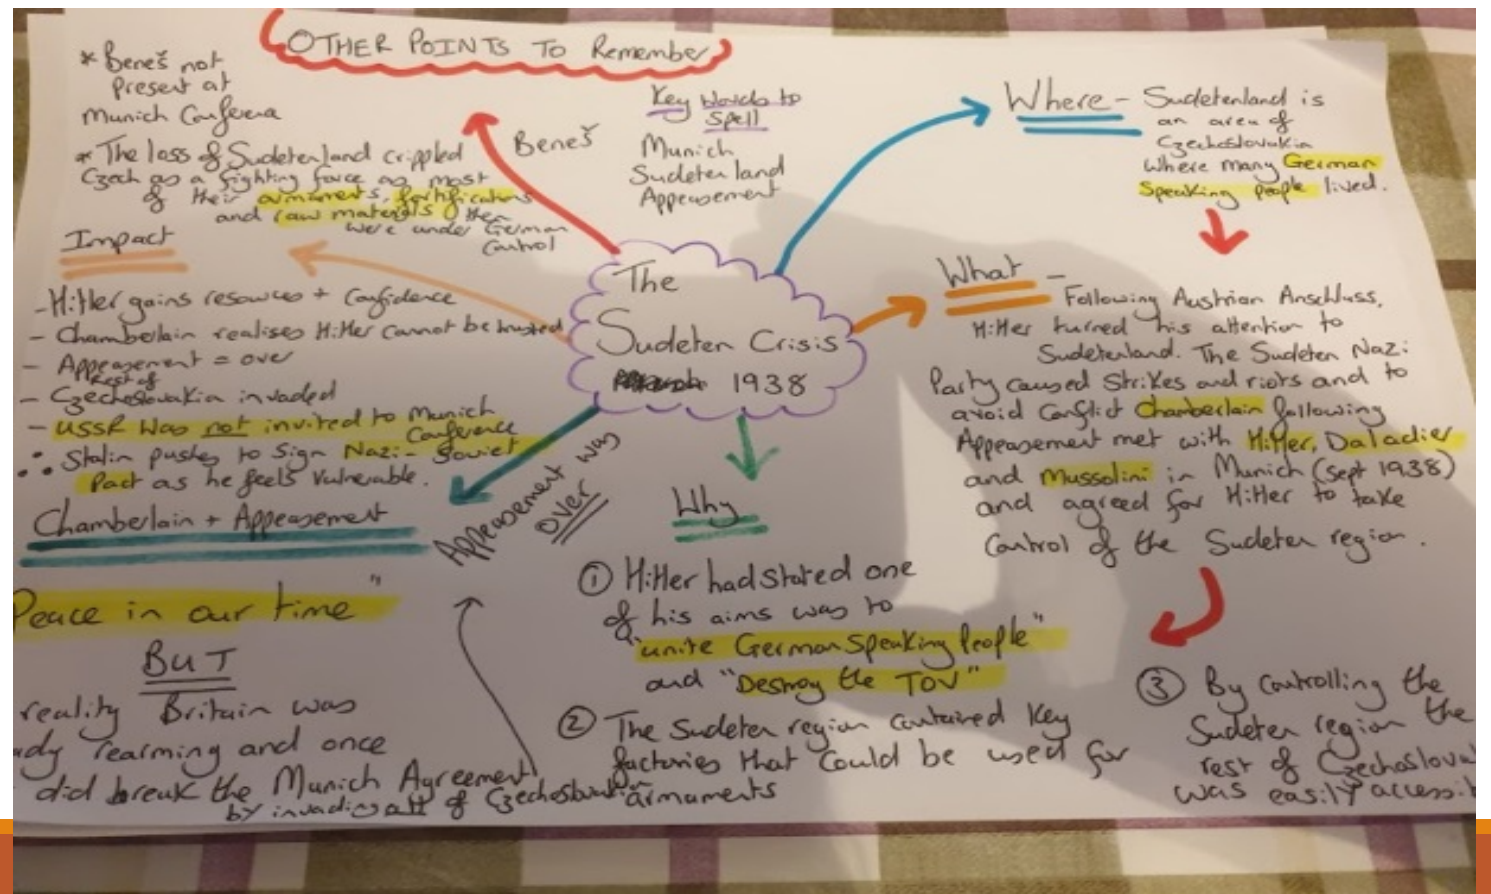 OTHER POINTS TO Remember
* Beneš not
present at
Munich Conference
* The loss of Sudetenland crippled
Czech as a fighting force as most
of their armaments, fortifications
and raw materials then
were under German
Control
Beneš
Key Words to
Spell
Munich
Sudetenland
Appeasement
Where - Sudetenland is
an area of
Czechoslovakia
where many German
Speaking people lived.
The
Sudeten Crisis
1938
What -
Following Austrian Anschluss,
Hitler turned his attention to
Sudetenland. The Sudeten Nazi
Party caused strikes and riots and to
avoid conflict Chamberlain following
Appeasement met with Hitler, Daladier
and Mussolini in Munich (sept 1938)
and agreed for Hitler to take
Control of the Sudeten region.
Impact
- Hitler gains resources + Confidence
- Chamberlain realises Hitler cannot be trusted
- Appeasement = over
Rest of
- Czechoslovakia invaded
- USSR was not invited to Munich
Conference
∴ Stalin pushes to sign Nazi-Soviet
Pact as he feels vulnerable.
Chamberlain + Appeasement
Appeasement was
OVER
Peace in our time"
BUT
reality Britain was
ady rearming and once
did break the Munich Agreement
by invading all of Czechoslovakia
Why
① Hitler had stated one
of his aims was to
"unite German Speaking People"
and "Destroy the TOV"
② The Sudeten region contained key
factories that could be used for
armaments
③ By controlling the
Sudeten region the
rest of Czechoslova
was easily accessib